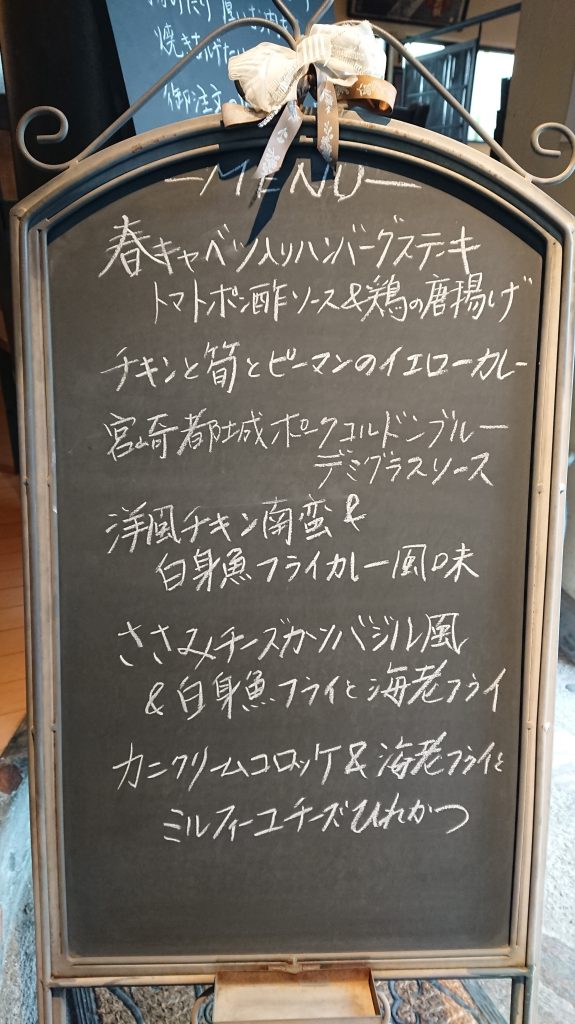 焼き上げた
御注文
MENU
春キャベツ入りハンバーグステーキ
トマトポン酢ソース&鶏の唐揚げ
チキンと筍とピーマンのイエローカレー
宮崎都城ポークコルドンブルー
デミグラスソース
洋風チキン南蛮&
白身魚フライカレー風味
ささみチーズカツバジル風
&白身魚フライと海老フライ
カニクリームコロッケ&海老フライと
ミルフィーユチーズひれかつ